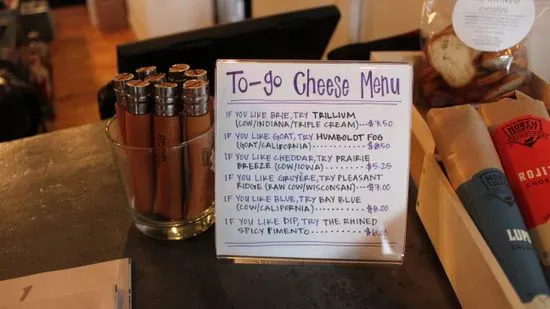 To-go Cheese Menu
IF YOU LIKE BRIE, TRY TRILLIUM
(COW/INDIANA/TRIPLE CREAM)...$7.50
IF YOU LIKE GOAT, TRY HUMBOLDT FOG
(GOAT/CALIFORNIA)
IF YOU LIKE CHEDDAR, TRY PRAIRIE
BREEZE (COW/IOWA)............$5.25
IF YOU LIKE GRUYÈRE, TRY PLEASANT
RIDGE (RAW COW/WISCONSIN)....$7.00
IF YOU LIKE BLUE, TRY BAY BLUE
(COW/CALIFORNIA)............$8.00
IF YOU LIKE DIP, TRY THE RHINED
SPICY PIMENTO
OPINEL
1
NORTH
ROJI
CHO
LUP